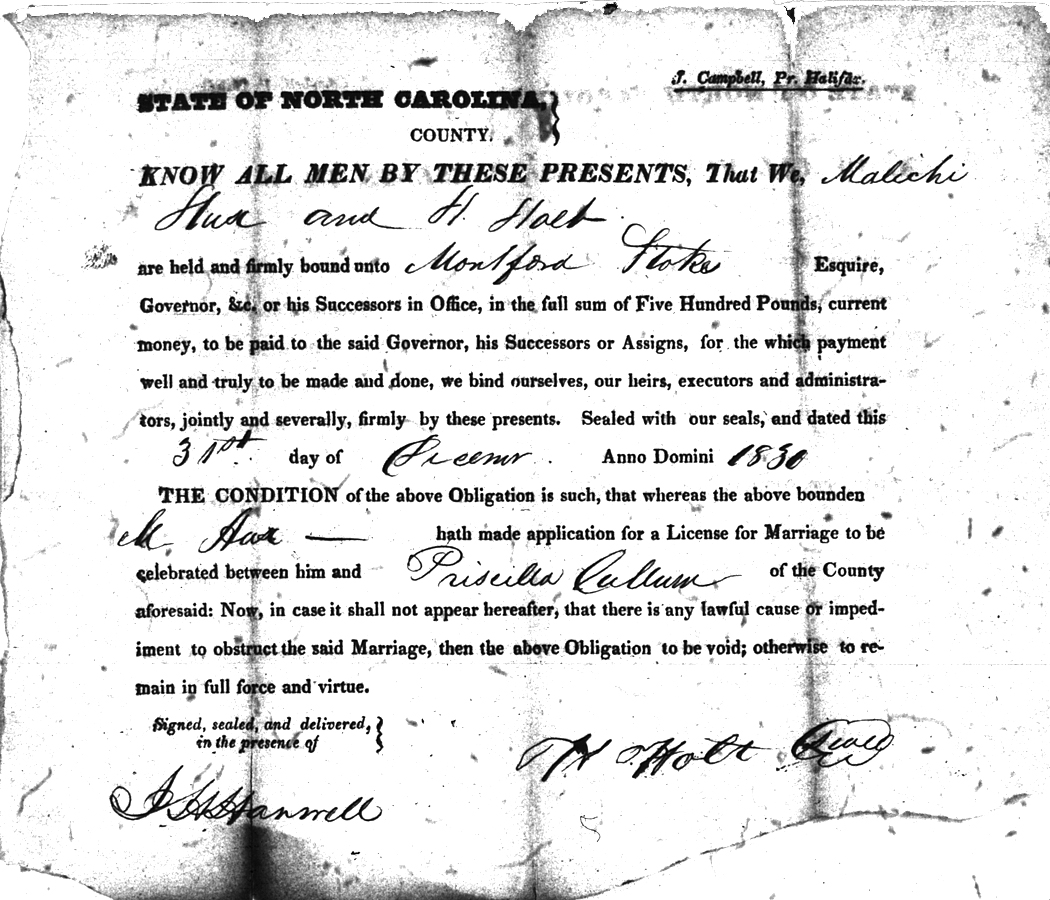 J. Campbell, Pr. Halifax.
STATE OF NORTH CAROLINA,
COUNTY.
KNOW ALL MEN BY THESE PRESENTS, That We, Malichi
Hux and H. Holt
are held and firmly bound unto Montford Stokes Esquire,
Governor, &c. or his Successors in Office, in the full sum of Five Hundred Pounds, current
money, to be paid to the said Governor, his Successors or Assigns, for the which payment
well and truly to be made and done, we bind ourselves, our heirs, executors and administra-
tors, jointly and severally, firmly by these presents. Sealed with our seals, and dated this
31st day of Decemr. Anno Domini 1830
THE CONDITION of the above Obligation is such, that whereas the above bounden
M Hux — hath made application for a License for Marriage to be
celebrated between him and Priscilla Cullum of the County
aforesaid: Now, in case it shall not appear hereafter, that there is any lawful cause or imped-
iment to obstruct the said Marriage, then the above Obligation to be void; otherwise to re-
main in full force and virtue.
Signed, sealed, and delivered,
in the presence of
H Holt Seal